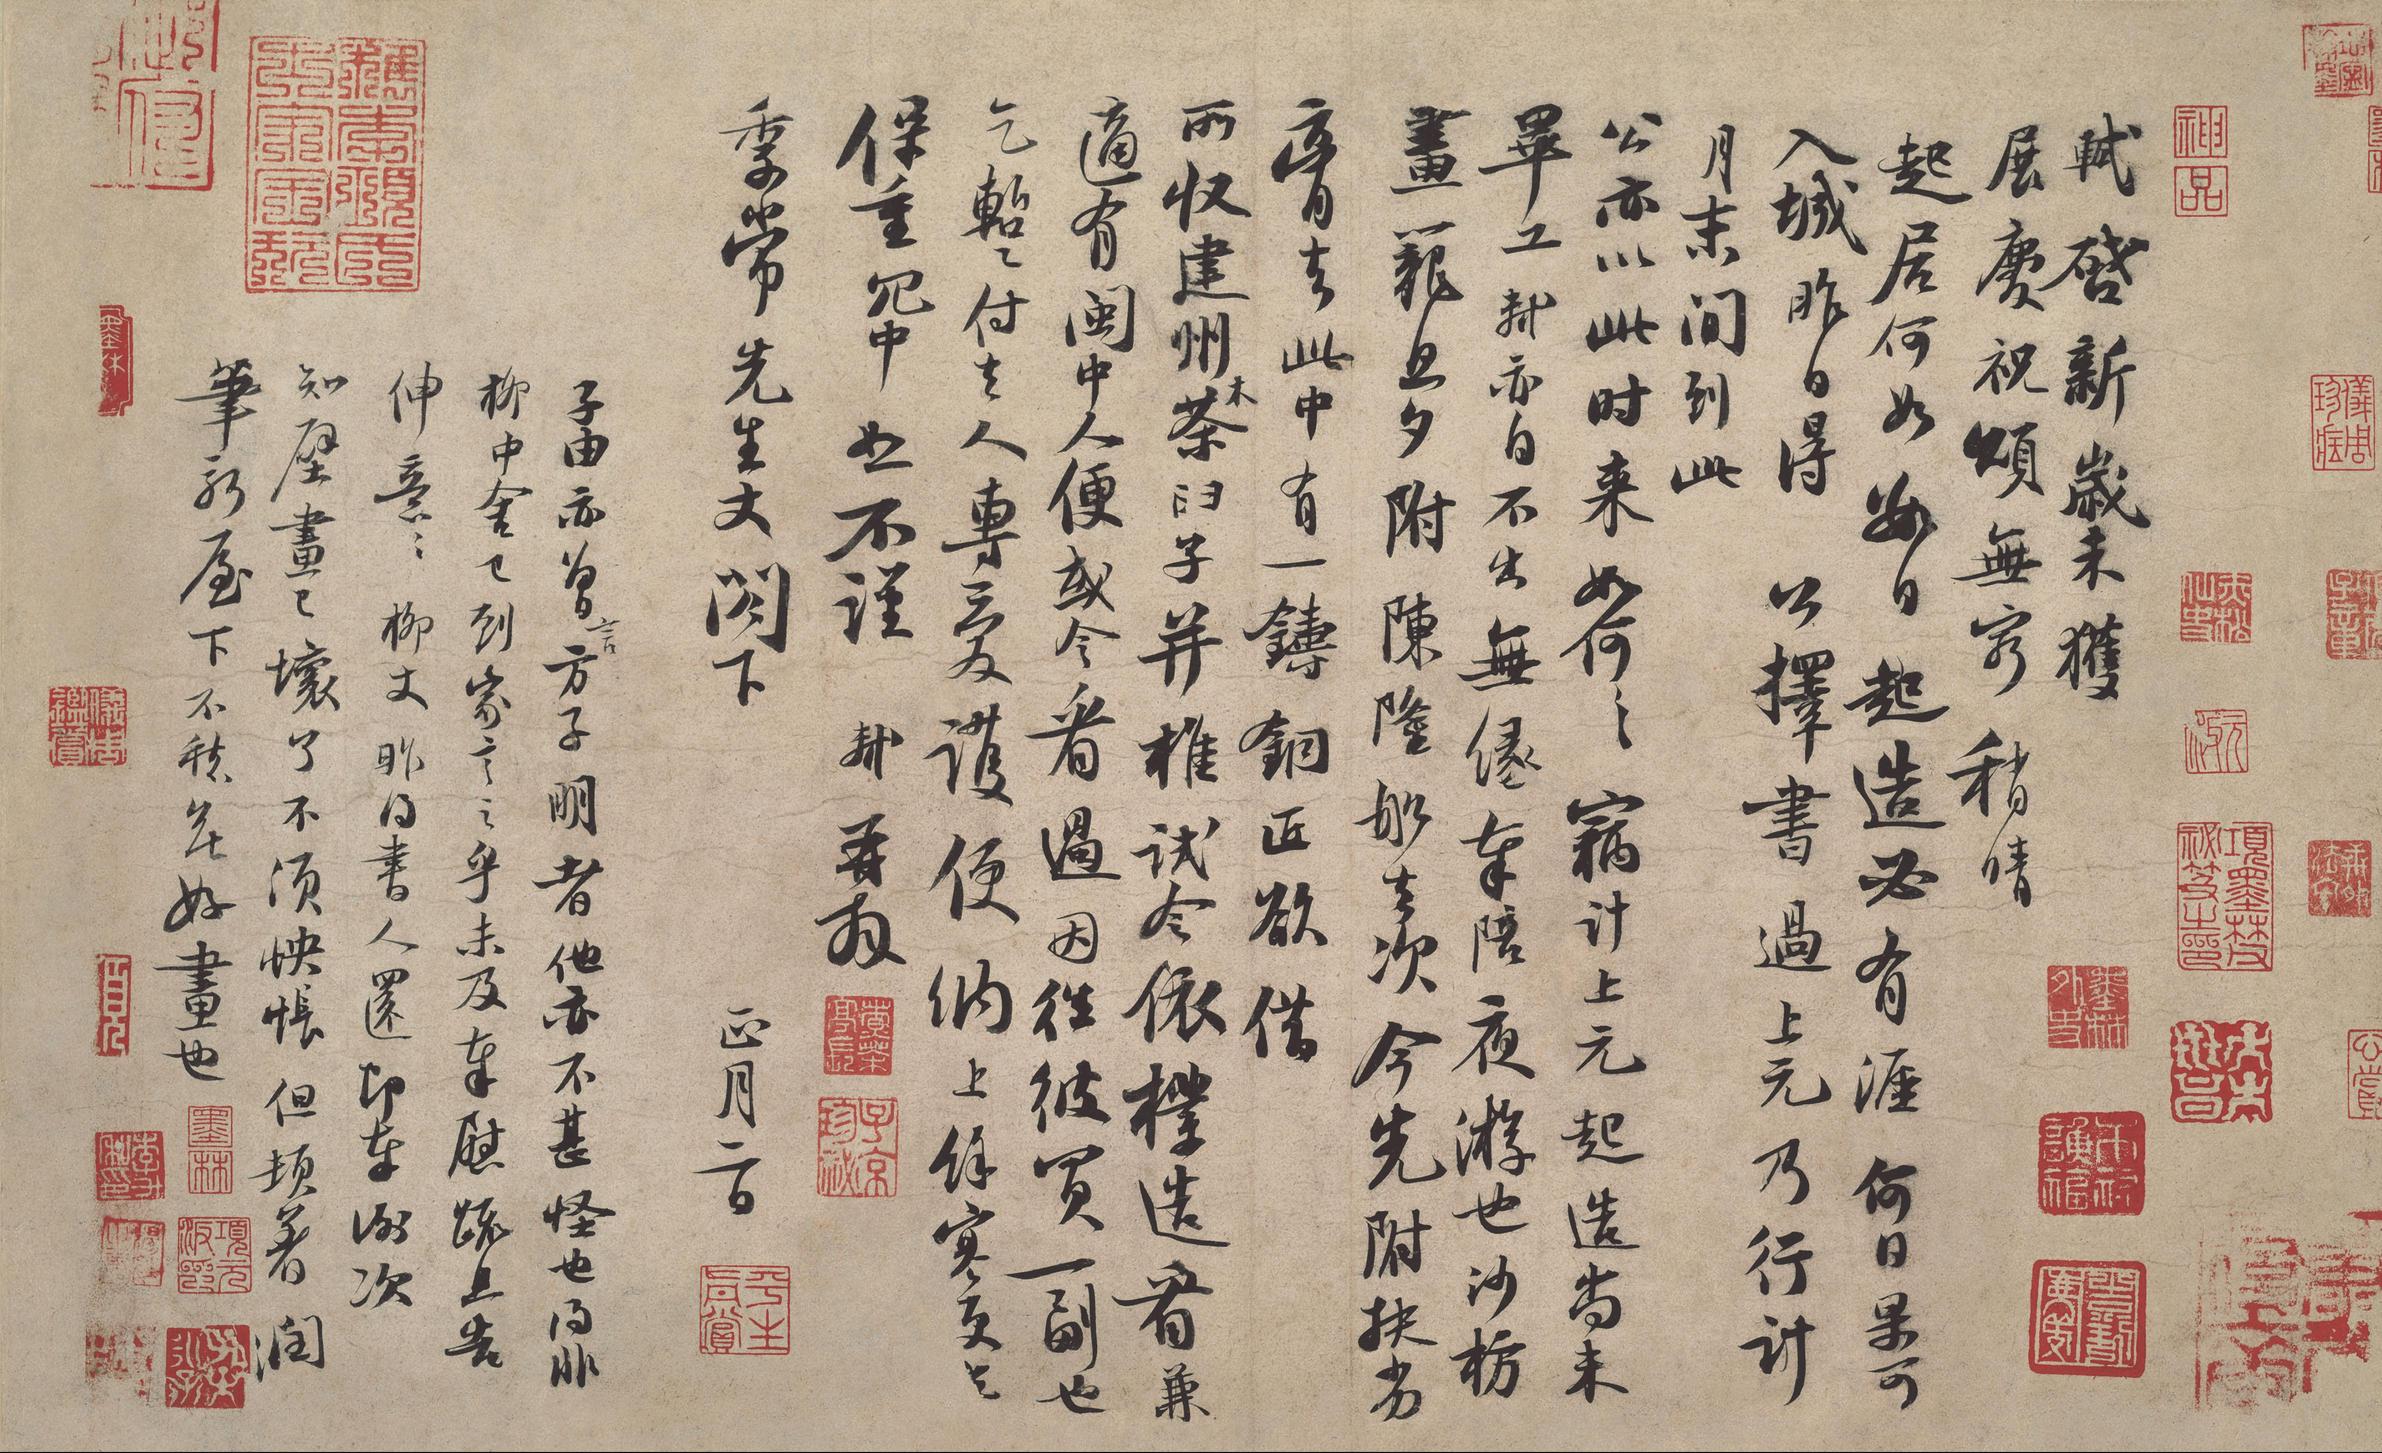 神品
軾啓新歲未獲
展慶祝頌無窮稍晴
起居何如數日起造必有涯何日果可
入城昨日得公擇書過上元乃行計
月末間到此
公亦以此时来如何〻竊計上元起造尚未
畢工軾亦自不出無緣奉陪夜游也沙枋
畫籠旦夕附陳隆船去次今先附扶劣
膏去此中有一鑄銅匠欲借
所收建州木茶臼子并椎試令依樣造看兼
適有閩中人便或令看過因往彼買一副也
乞暫〻付去人專愛護便納上餘寒更乞
保重冗中恕不謹軾再拜
季常先生丈閤下
正月二日
子由亦曾言方子明者他亦不甚怪也得非
柳中舍已到家言之乎未及奉慰疏且告
伸意〻柳丈昨得書人還即奉謝次
知壁畫已壞了不須怏悵但頓著潤
筆新屋下不愁無好畫也
項墨林父祕笈之印
子京珍祕
平生真賞
墨林